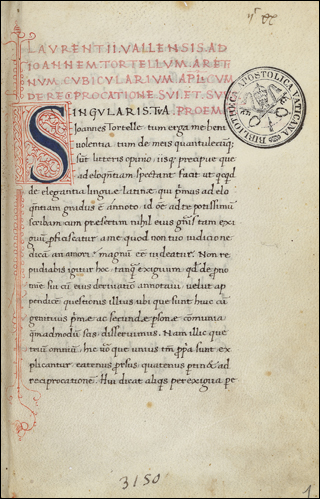 LAVRENTII. VALLENSIS. AD
IOANNEM. TORTELLVM. ARET
NVM. CVBICVLARIVM. APLICVM
DE RECIPROCATIONE SVI. ET. SVVS
PROEM
SINGVLARIS. TVA
Ioannes Tortelle: tum erga me beni
volentia tum de meis quantuleciq;
sūt litteris opinio: usq; precipue que
ad eloquentiam spectant facit ut qcqd
de elegantia linguae latinae qui primas ad elo
quentiam gradus est annoto id oē ad te potissimū
scribam cum presertim nihil eius gn̄is tam exi
guū proficiscatur a me quod non tuo iudicio ne
dicā an amori magnū ec videatur. Non re
pudiabis igitur hoc tanq̄ exiguum qd de prio
me sui cū eius derivatiō annotavi velut ap
pendicē questionis illius ubi que sunt huic cū
genitivis primae ac secundae psonae cōmunia
quēadmodū seis disseruimus. Nam illic que
triū omniū, hic vō que unius tm̄ ppria sunt ex
plicantur eatenus prsus quatenus ptinēt ad
reciprocationem. Hui dicat aliqs per exigua pe
BIBLIOTHECA APOSTOLICA VATICANA
3150
1